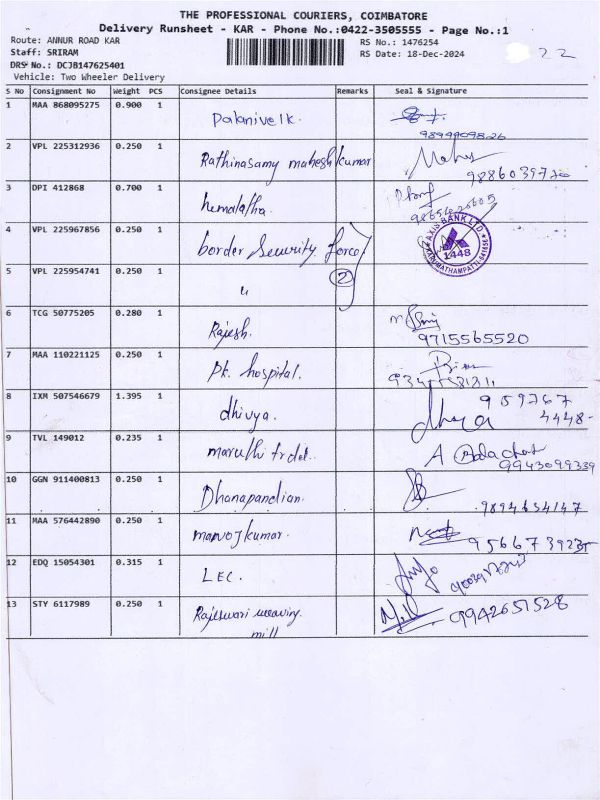 THE PROFESSIONAL COURIERS, COIMBATORE
Delivery Runsheet - KAR - Phone No.:0422-3505555 - Page No.:1
Route: ANNUR ROAD KAR
RS No.: 1476254
Staff: SRIRAM
RS Date: 18-Dec-2024
22
DRS No.: DCJB147625401
Vehicle: Two Wheeler Delivery
S No Consignment No Weight PCS Consignee Details Remarks Seal & Signature
1 MAA 868095275 0.900 1 Palanivelk.
2 VPL 225312936 0.250 1 Rathinasamy maheshkumar
3 DPI 412868 0.700 1 hemalatha.
4 VPL 225967856 0.250 1 border Security force
AXIS BANK LTD
1448
5 VPL 225954741 0.250 1 " 2
6 TCG 50775205 0.280 1 Rajesh.
9715565520
7 MAA 110221125 0.250 1 pk. hospital.
8 IXM 507546679 1.395 1 dhivya. 959767
4448-
9 TVL 149012 0.235 1 maruthi
9943099339
10 GGN 911400813 0.250 1 Dhanapandian.
9894634147
11 MAA 576442890 0.250 1 manojkumar.
12 EDQ 15054301 0.315 1 LEC.
13 STY 6117989 0.250 1 Rajeswari weaving 9942651528
mill